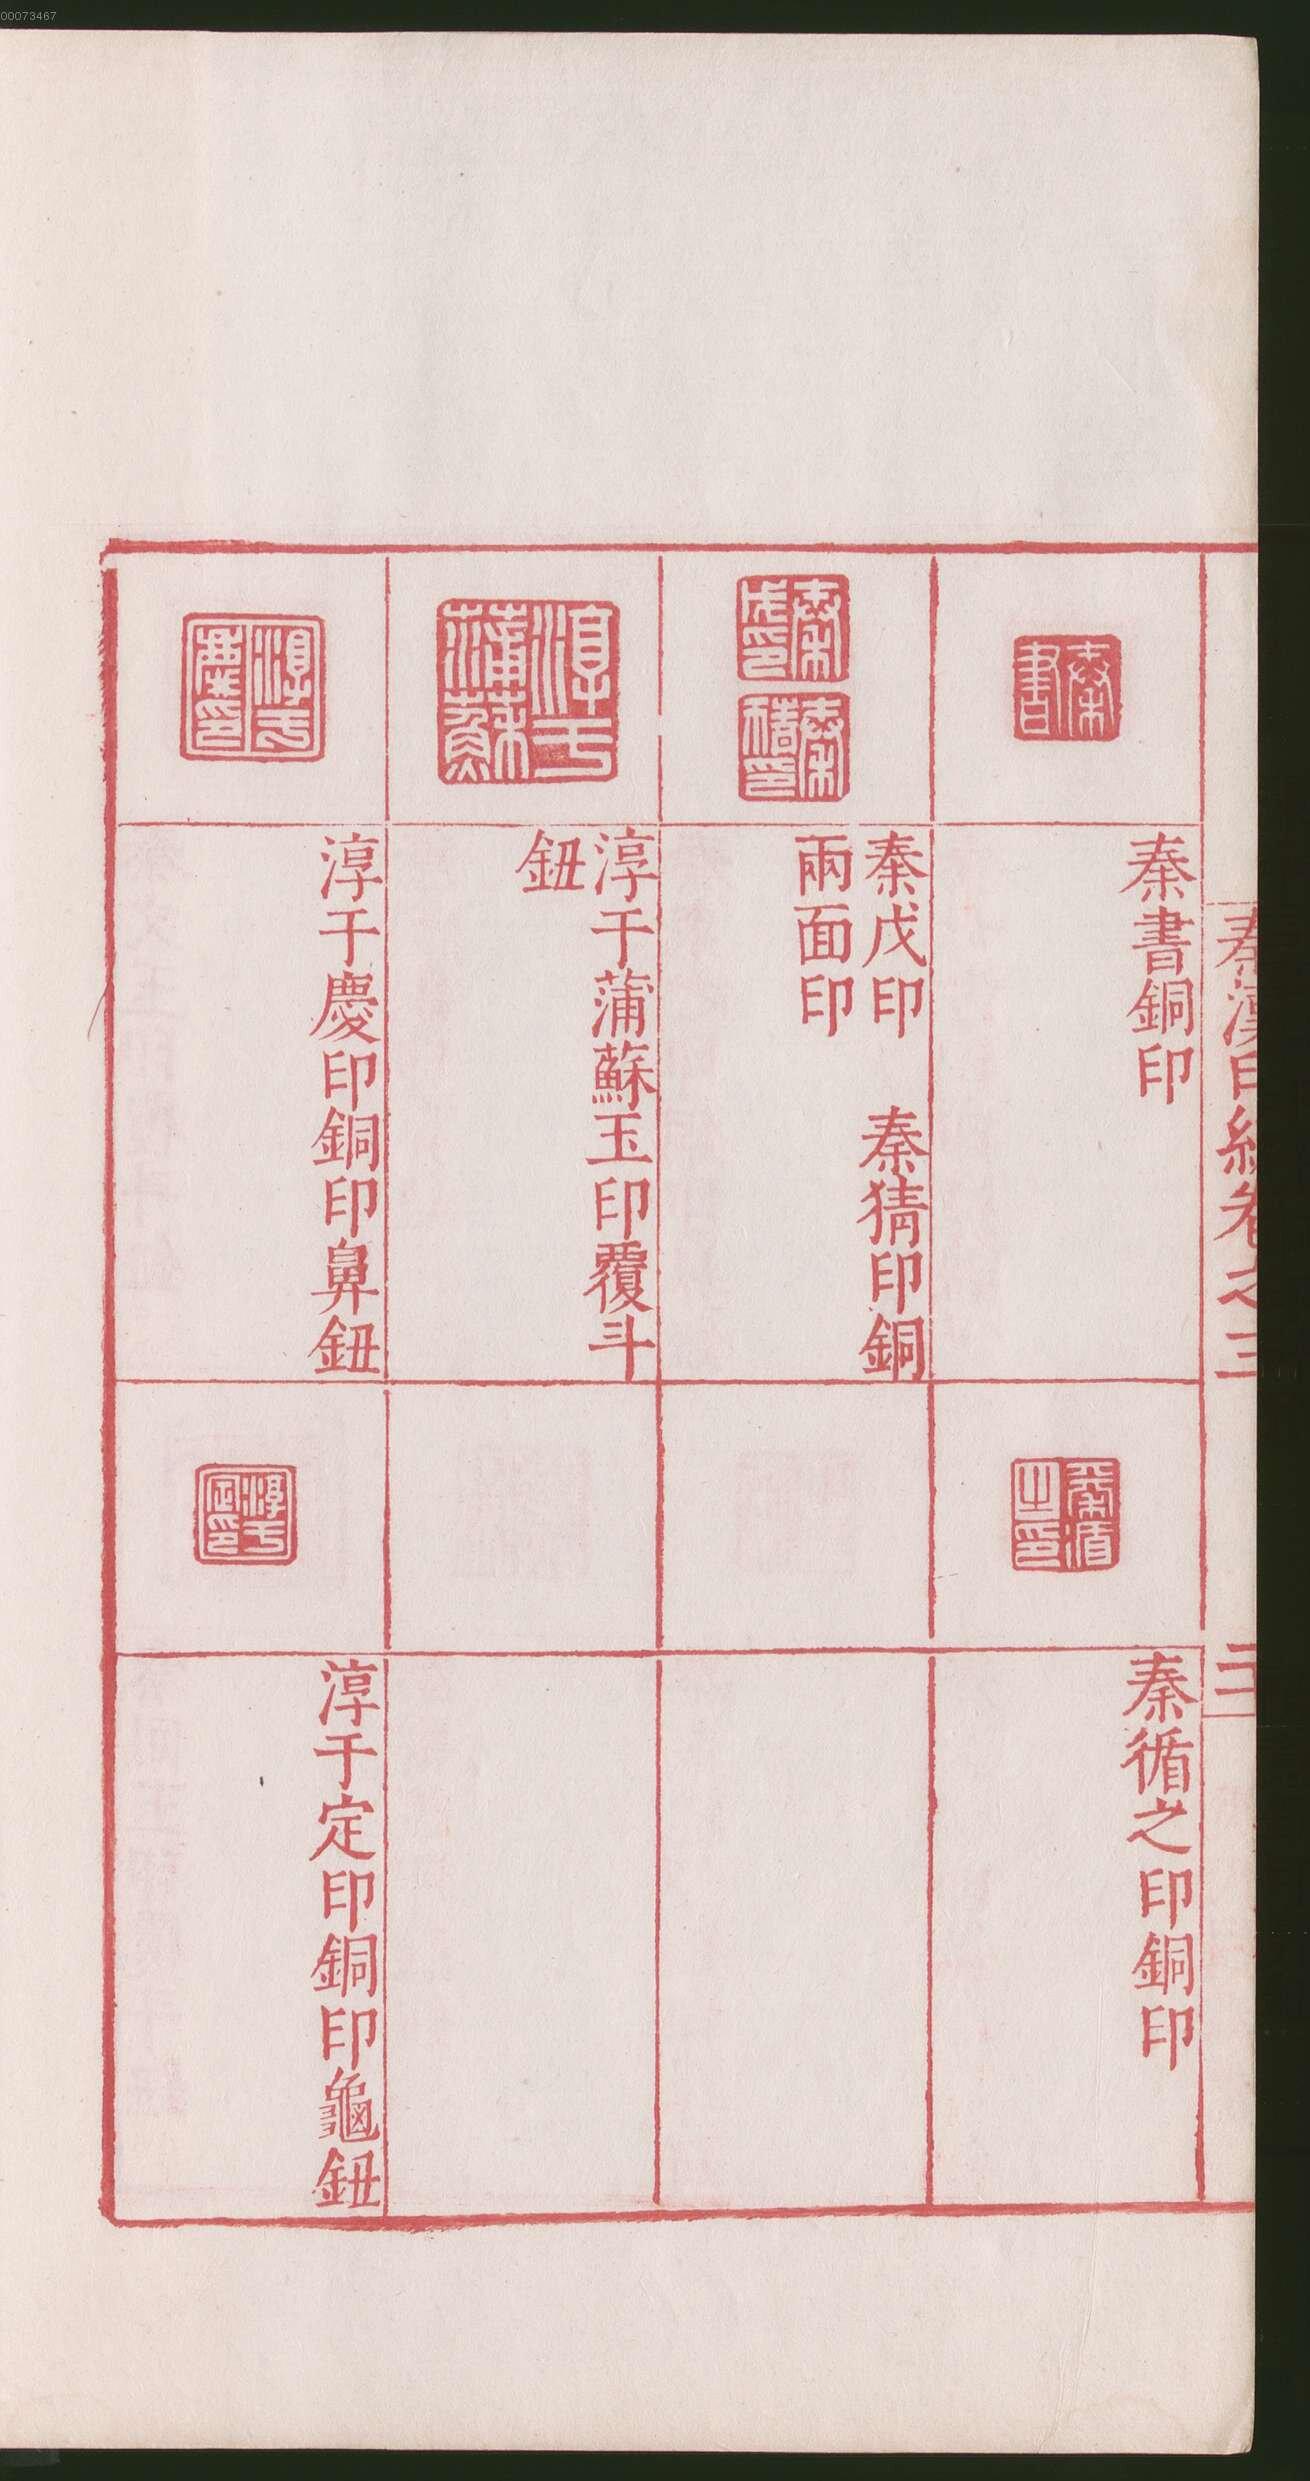 00073467
秦漢印統卷之三
秦書
秦書銅印
秦循之印
秦循之印銅印
秦戊印
秦猜印
秦戊印 秦猜印銅
兩面印
淳于蒲蘇
淳于蒲蘇玉印覆斗
鈕
淳于慶印
淳于慶印銅印鼻鈕
淳于定印
淳于定印銅印龜鈕